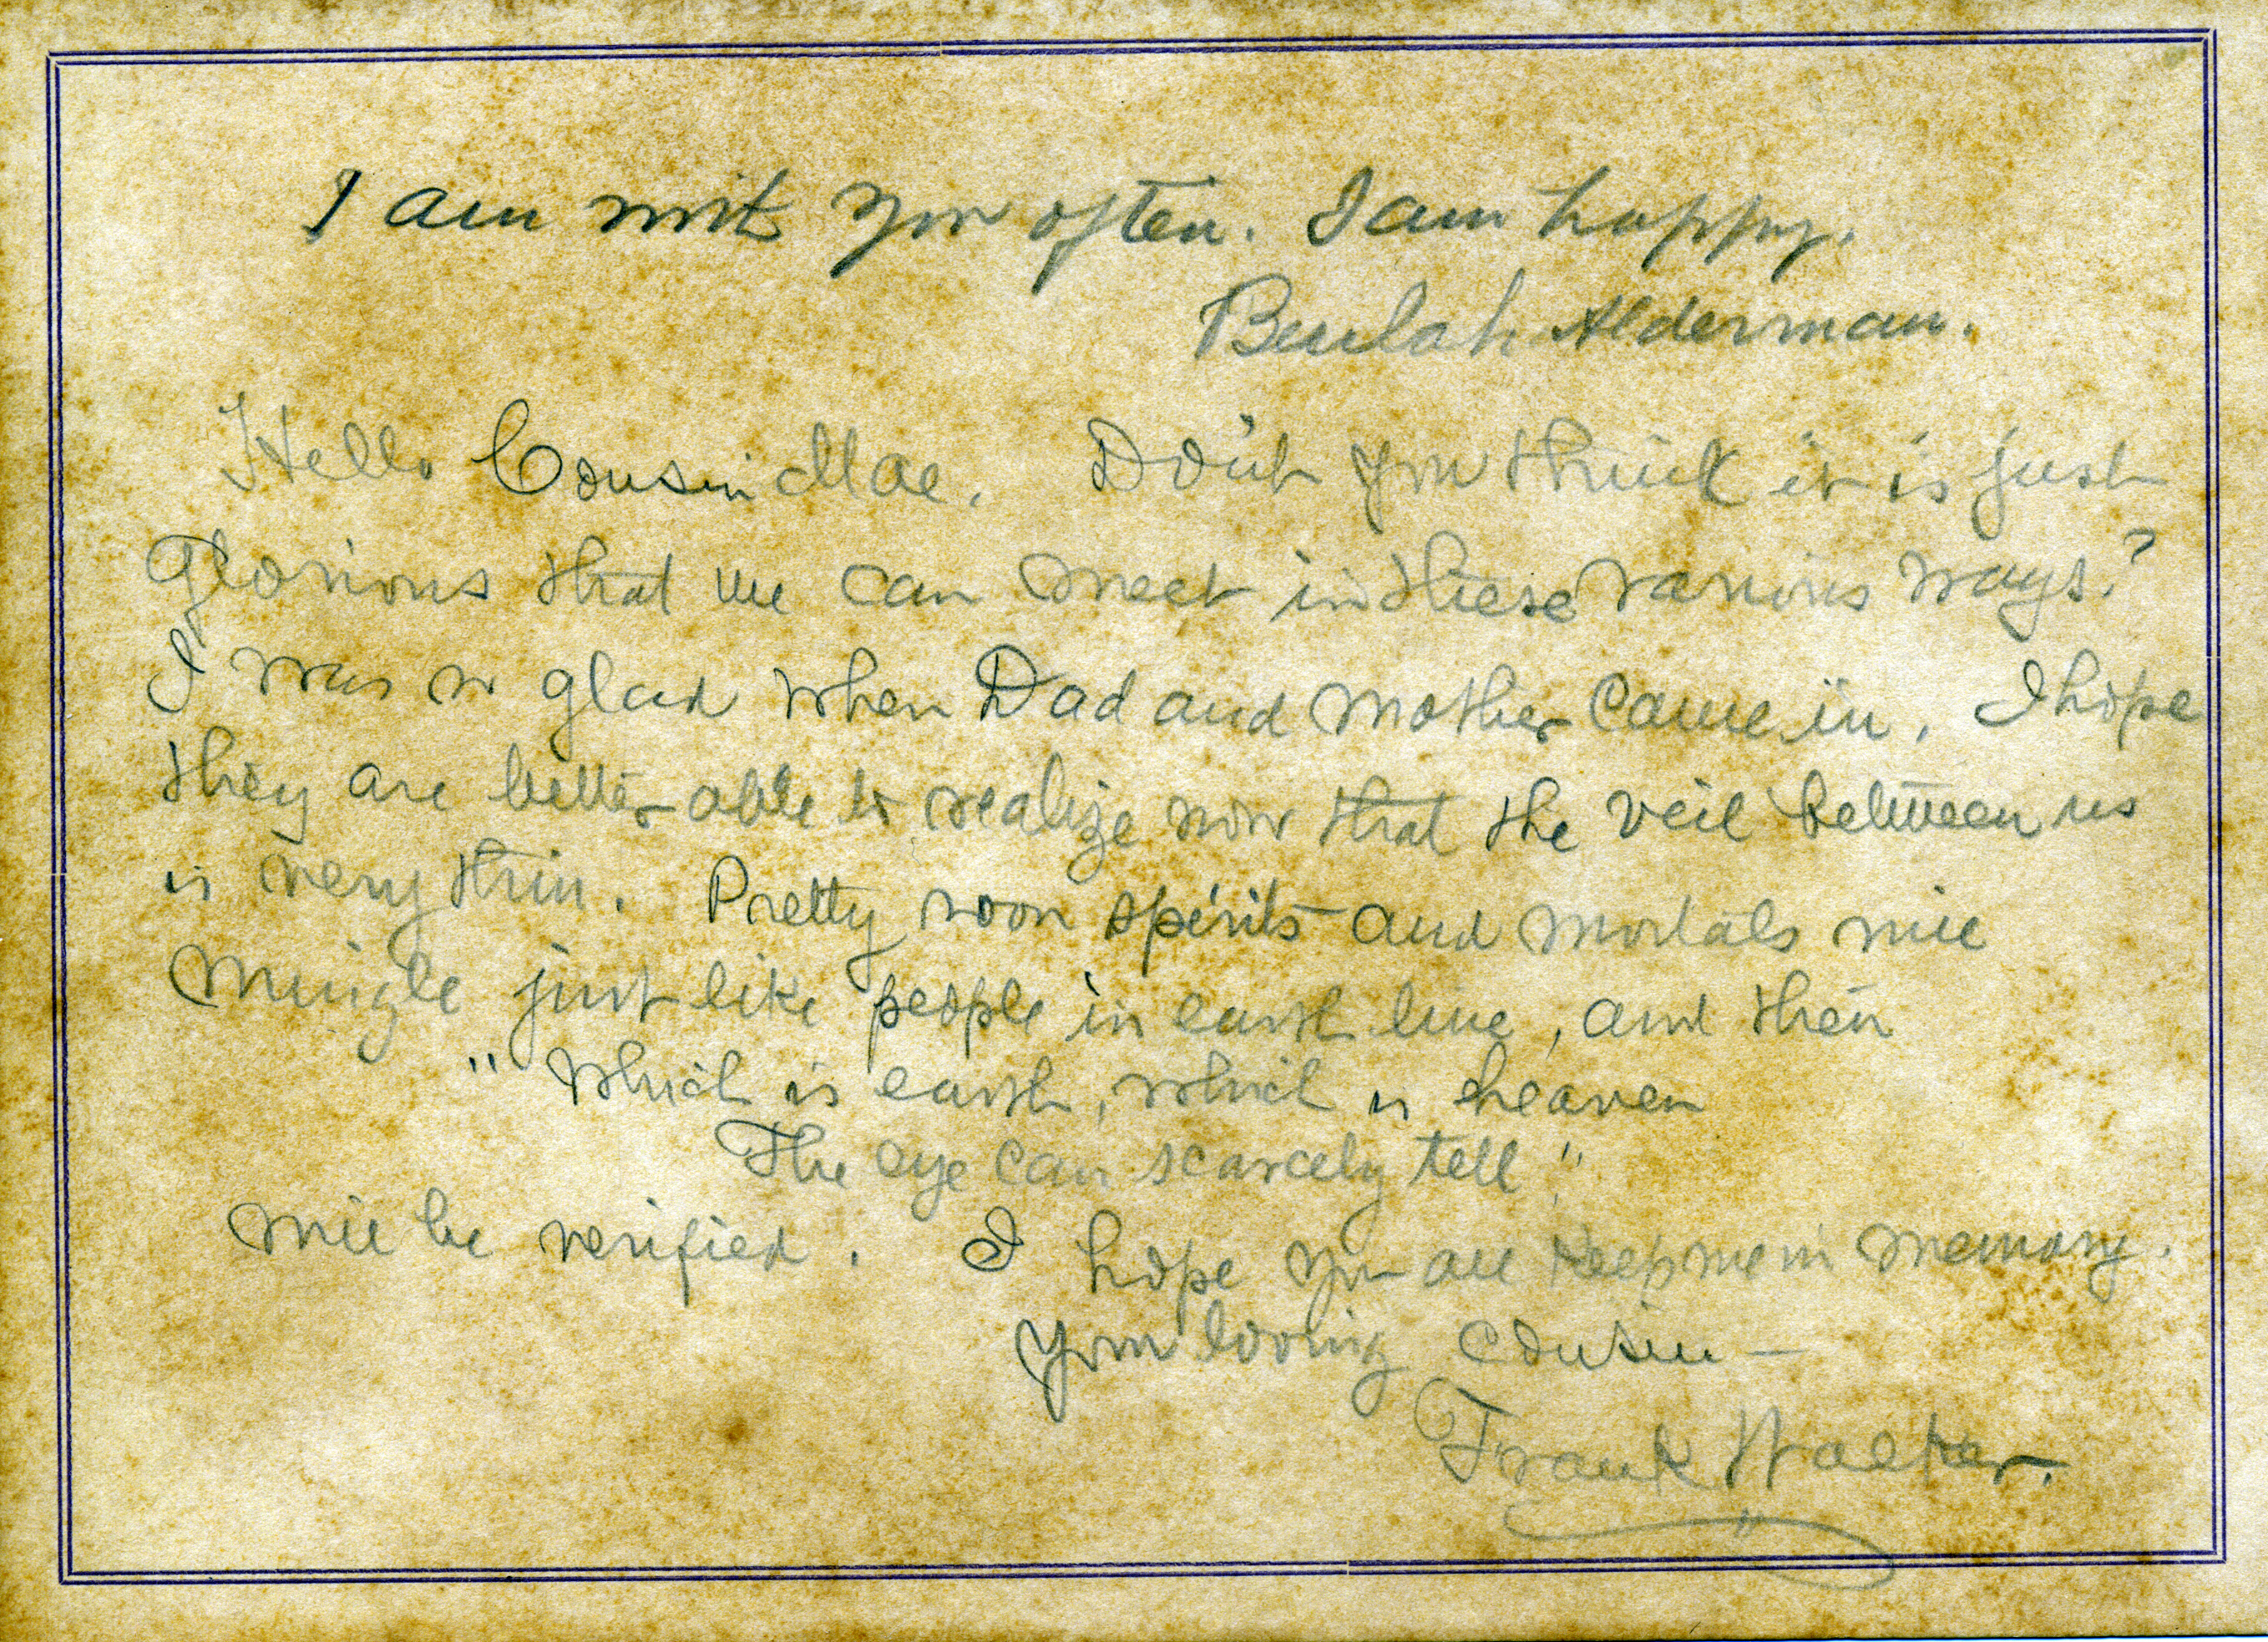 I am with you often. I am happy.
Beulah Alderman.
Hello Cousin Mae. Don't you think it is just
glorious that we can meet in these various ways?
I was so glad when Dad and Mother came in. I hope
they are better able to realize now that the veil between us
is very thin. Pretty soon spirits and mortals will
mingle just like people in earth line, and then
"Which is earth, which is heaven
The eye can scarcely tell"
will be verified. I hope you all keep me in memory.
Your loving cousin —
Frank Walter.